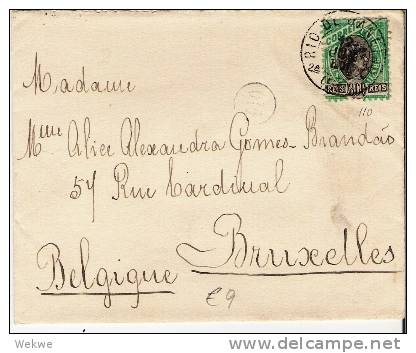 RIO DE JANEIRO
CORREIO
REIS 200 REIS
110
Madame
Mme Alice Alexandra Gomes Brandão
57 Rue Cardinal
Bruxelles
Belgique
€9
Wekwe
delcampe.net